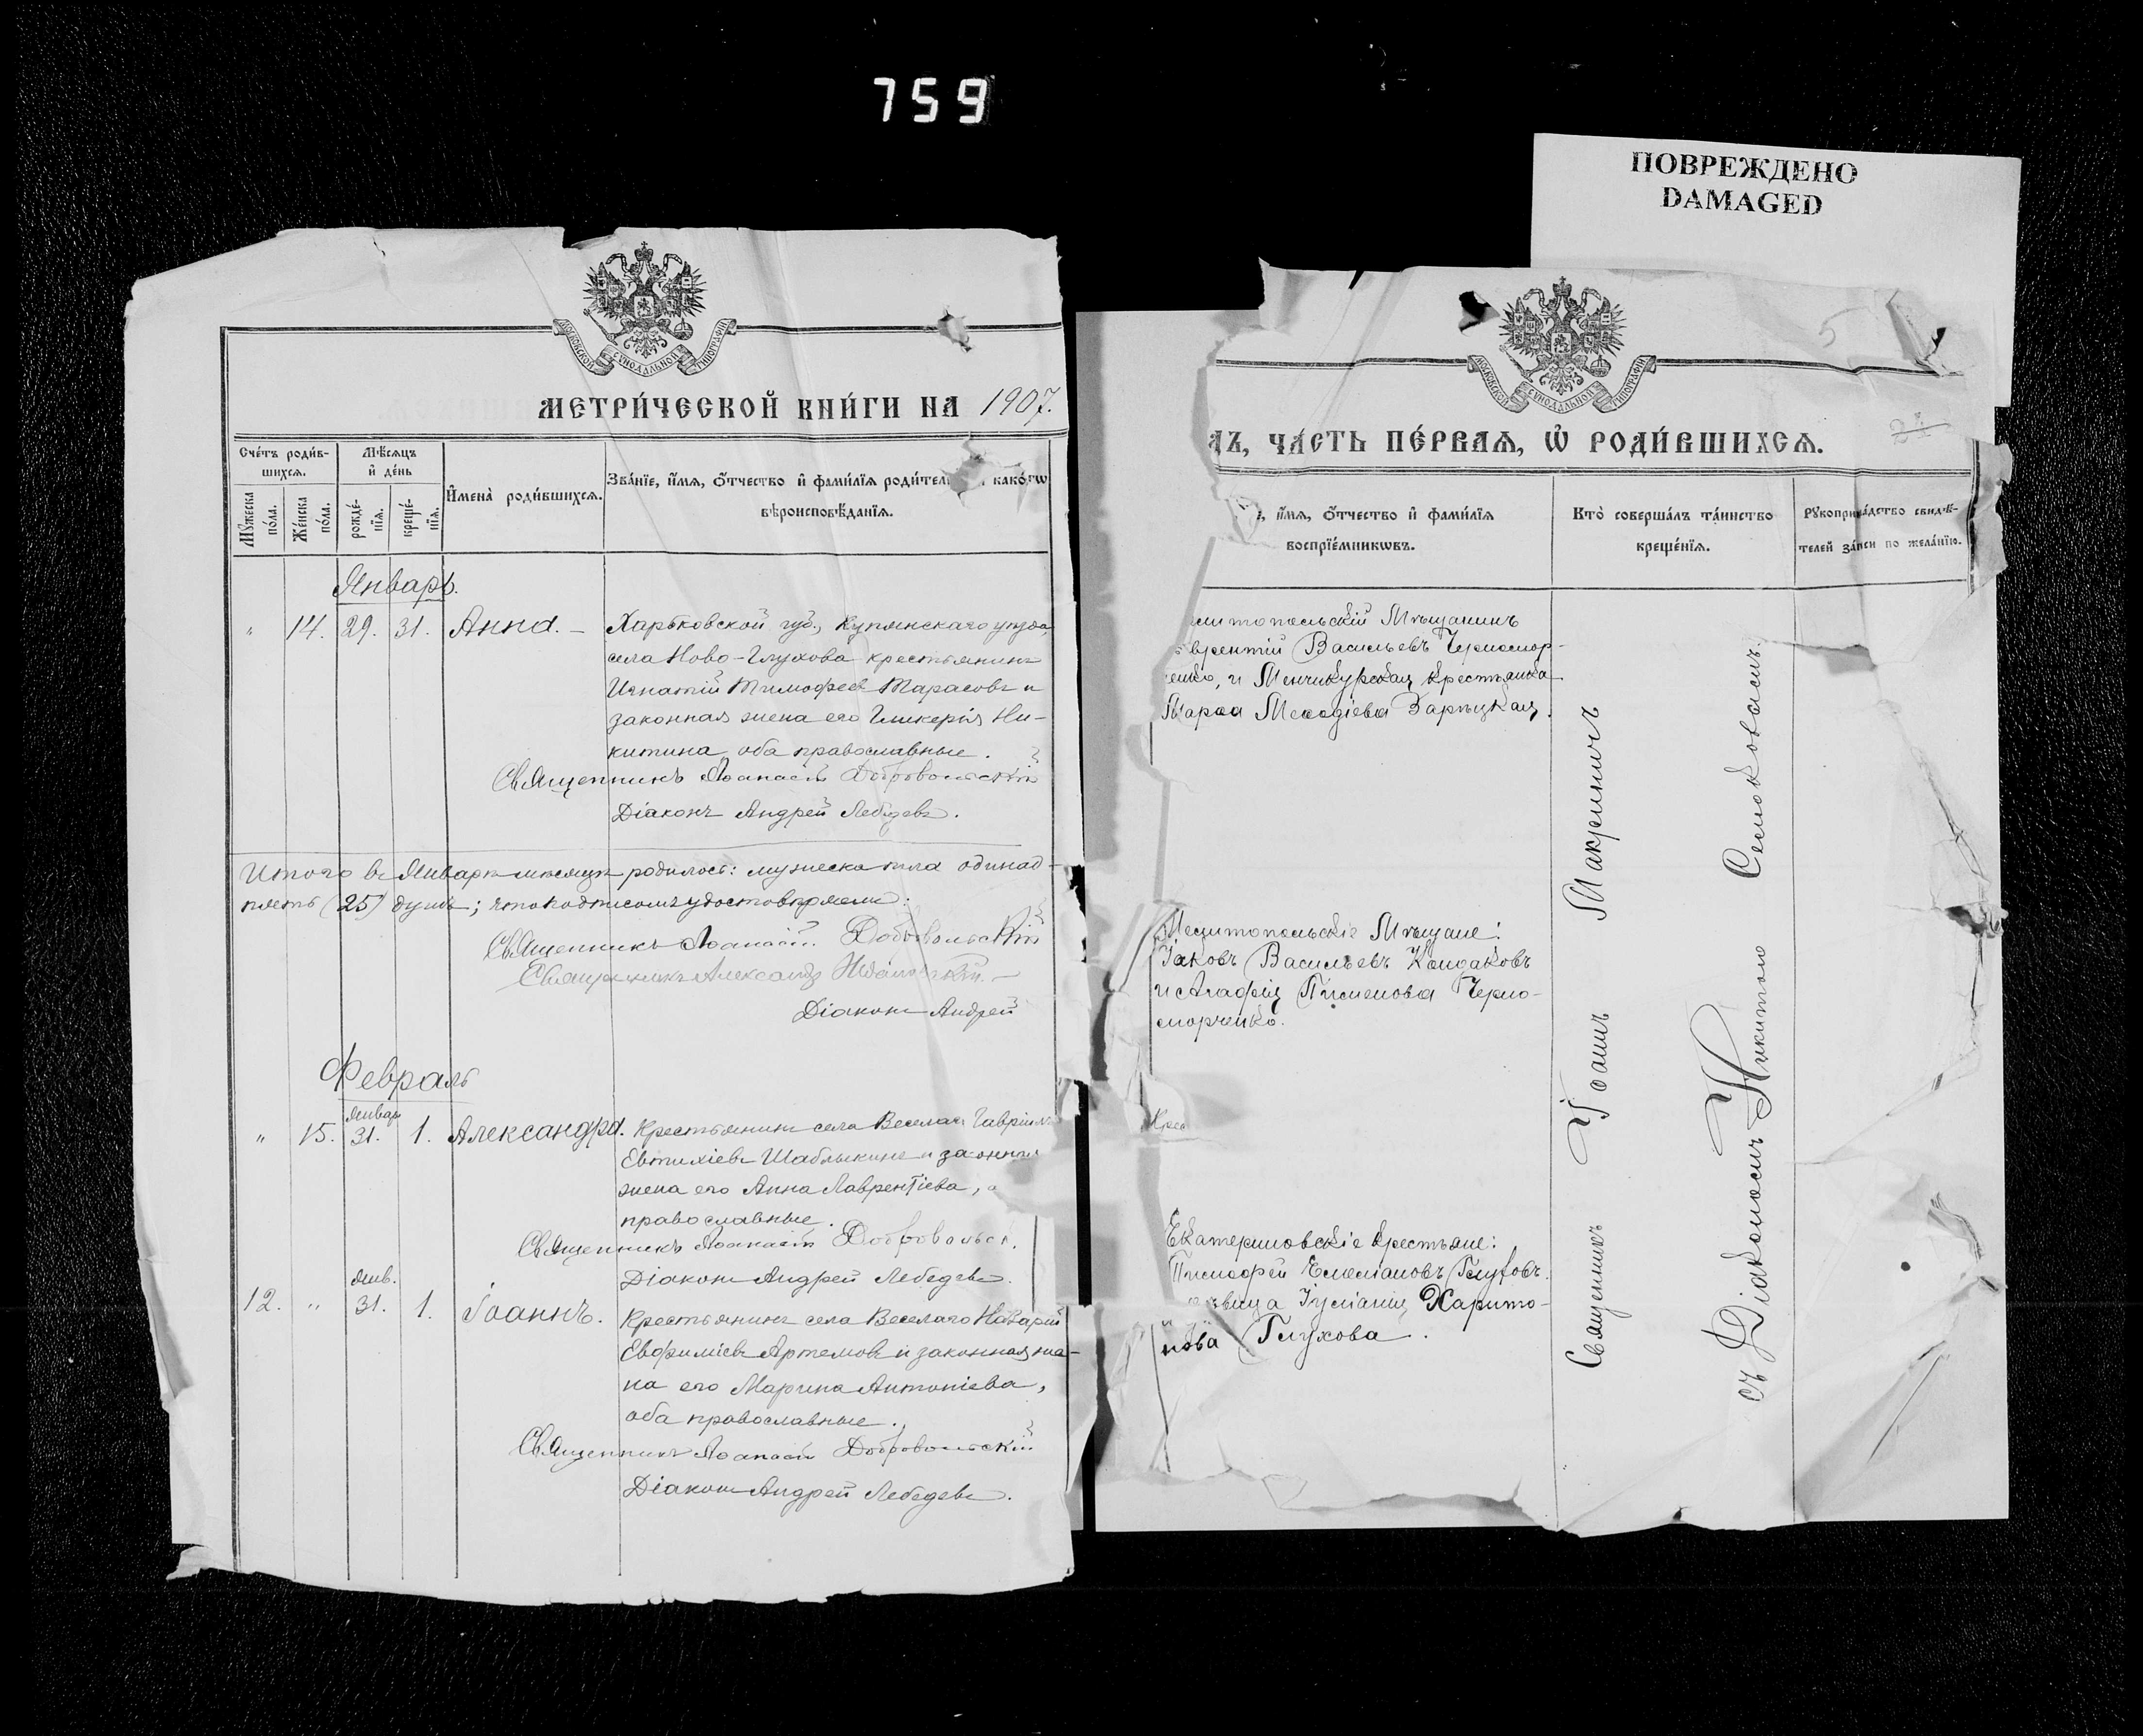 759
ПОВРЕЖДЕНО
DAMAGED
МОСКОВСКОЙ СѴНОДАЛЬНОЙ ТИПОГРАФІИ
МЕТРИ́ЧЕСКОЙ КНИ́ГИ НА 1907.
Счéтъ роди́в-
шихся.
Мѣ́сяцъ
и҆ де́нь
И҆мена̀ роди́вшихся.
Зва́нїе, и҆́мя, ѻ҆́тчество и҆ фами́лїя роди́тел како́гѡ
вѣроисповѣ́данїя.
Мꙋ́жеска
по́ла.
Же́нска
по́ла.
рожде́-
нїя.
креще́-
нїя.
Январь.
" 14. 29. 31. Анна. – Харьковской губ., Купянскаго уѣзда,
села Ново-Глухова крестьянинъ
Игнатій Тимофеевъ Тарасовъ и
законная жена его Гликерія Ни-
китина, оба православные.
Священникъ Аѳанасій Добровольскій
Діаконъ Андрей Лебедевъ.
Итого въ Январѣ мѣсяцѣ родилось: мужеска пола одинад-
пять (25) душъ; что подписомъ удостовѣряемъ:
Священникъ Аѳанасій Добровольскій
Священникъ Александръ
Діаконъ Андрей
Февраль
Январь
" 15. 31. 1. Александра. Крестьянинъ села Веселаго Гавріилъ
Евтихіевъ Шаблыкинъ и законная
жена его Анна Лаврентіева,
православные.
Священникъ Аѳанасій Добровольск.
Діаконъ Андрей Лебедевъ.
Янв.
12. " 31. 1. Іоаннъ. Крестьянинъ села Веселаго Назарій
Евфиміевъ Артемовъ и законная же-
на его Марина Антоніева,
оба православные.
Священникъ Аѳанасій Добровольскій
Діаконъ Андрей Лебедевъ.
МОСКОВСКОЙ СѴНОДАЛЬНОЙ ТИПОГРАФІИ
5
ДЪ, ЧА́СТЬ ПЕ́РВАЯ, Ѡ҆ РОДИ́ВШИХСЯ.
, и҆́мя, ѻ҆́тчество и҆ фами́лїя
воспрїе́мникѡвъ.
Кто̀ соверша́лъ та́инство
креще́нїя.
телей за́писи по жела́нїю.
литопольскій Мѣщанинъ
врентій Васильевъ Черномор-
ченко, и Менчикурская крестьянка
Марѳа Меѳодіева Зарѣцкая.
Мелитопольскіе Мѣщане:
Іаковъ Васильевъ Кондаковъ
и Агафія Пименова Черно-
морченко.
Крес
Екатериновскіе крестьяне:
Тимофей Емеліановъ Глуховъ
и дѣвица Іуліанія Харито-
нова Глухова.
Священникъ Іоаннъ Макриничъ
съ Діакономъ Никитою